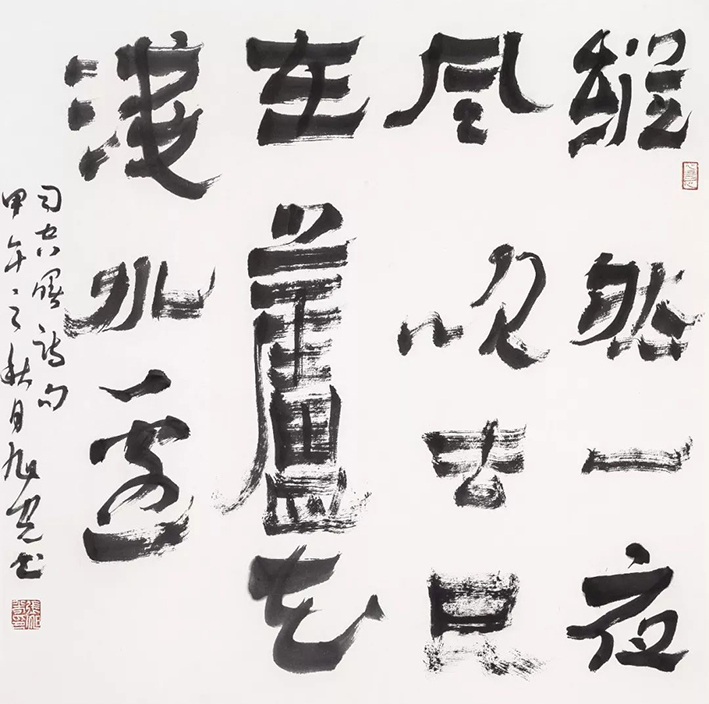 縱然一夜
風吹去只
在蘆花
淺水邊
司空曙詩句
甲午之秋月旭光書